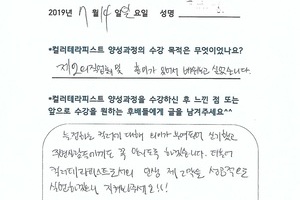 2019년 7월 14일 일요일 성명
*컬러테라피스트 양성과정의 수강 목적은 무엇이었나요?
제2의직업 및 흥미가 있어서 배우고 싶었습니다.
*컬러테라피스트 양성과정을 수강하신 후 느낀 점 또는
앞으로 수강을 원하는 후배들에게 글을 남겨주세요**
컬러에 대해 의미가 부여되어 신기했고
꼭 하겠습니다. 더욱이
컬러테라피스트로서의 인생 제2막을 성공적으로
지켜봐주세요!!!